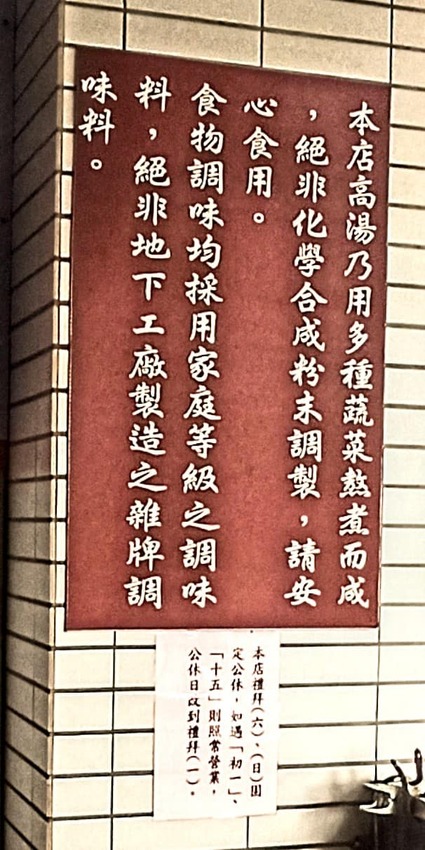 本店高湯乃用多種蔬菜熬煮而成
，絕非化學合成粉末調製，請安
心食用。
食物調味均採用家庭等級之調味
料，絕非地下工廠製造之雜牌調
味料。
本店禮拜(六)、(日)固
定公休，如遇「初一」、
「十五」則照常營業，
公休日改到禮拜(一)。